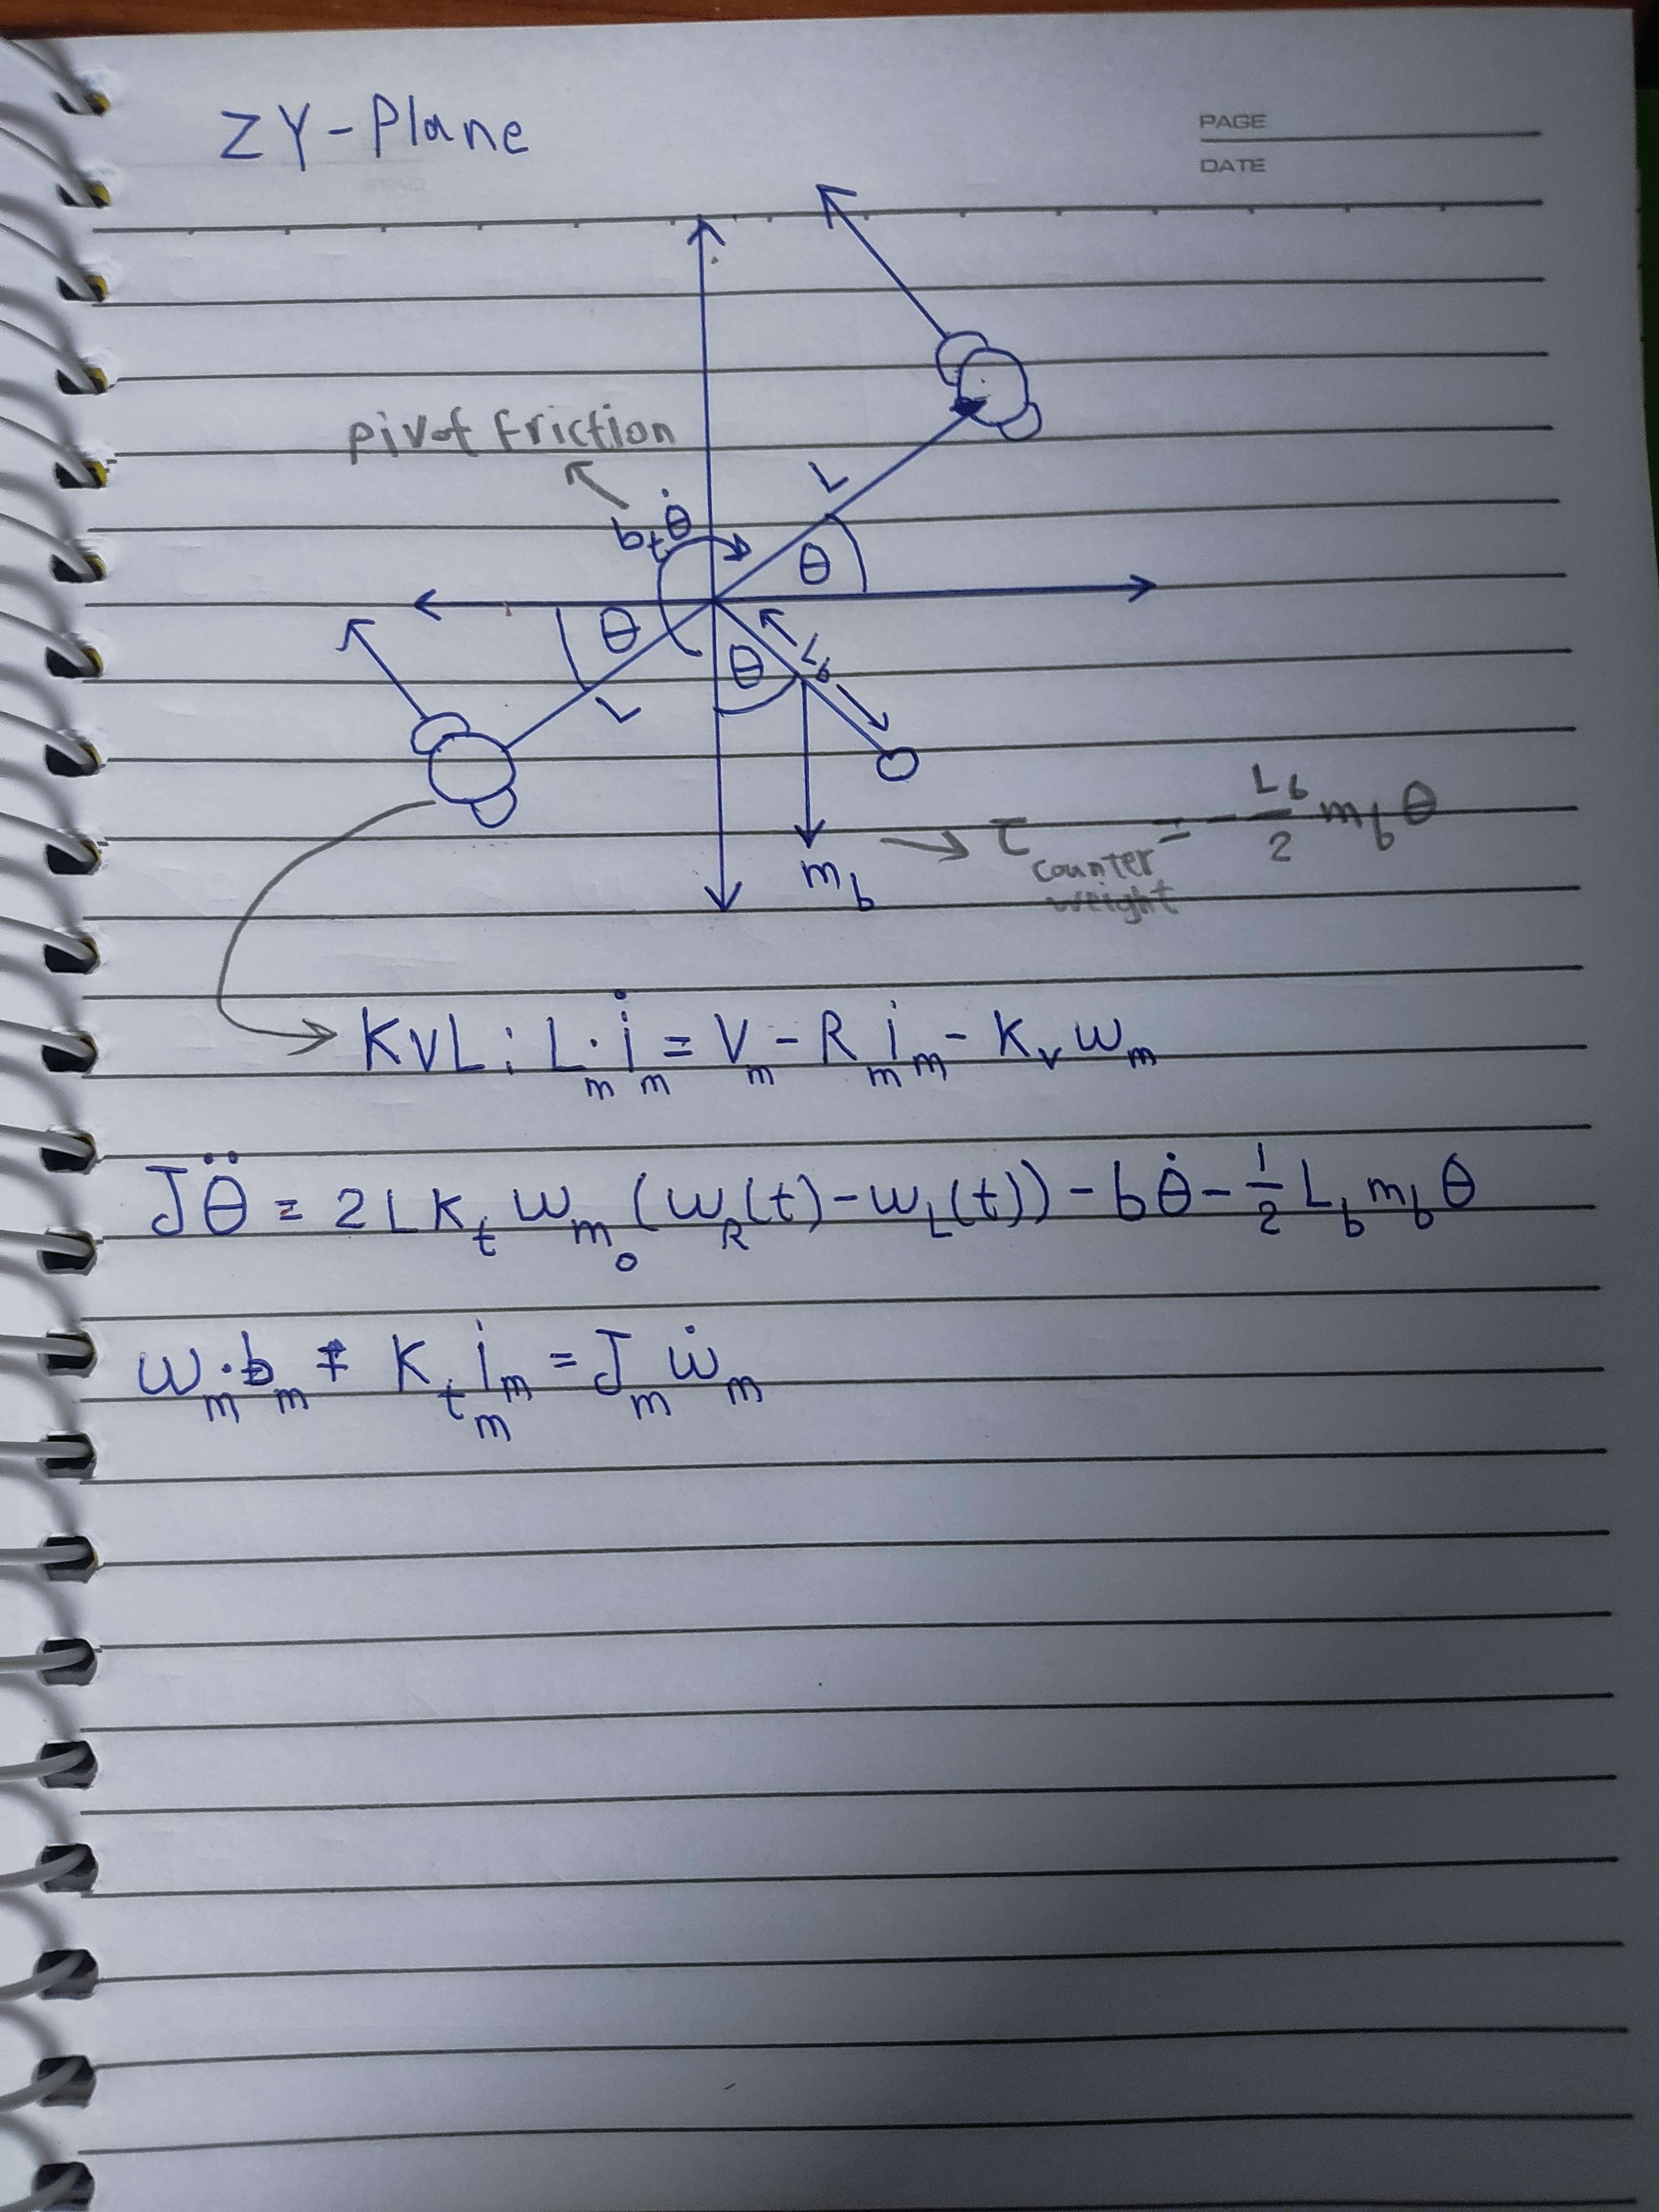 ZY-Plane
PAGE
DATE
pivot friction
b_t θ̇
L
θ
θ
θ
L_b
L
m_b
τ_counter weight = - L_b/2 m_b θ
KVL: L_m · i̇_m = V_m - R_m i_m - K_v ω_m
Jθ̈ = 2LK_t ω_m₀ (ω_R(t) - ω_L(t)) - bθ̇ - 1/2 L_b m_b θ
ω_m · b_m + K_t_m i_m = J_m ω̇_m